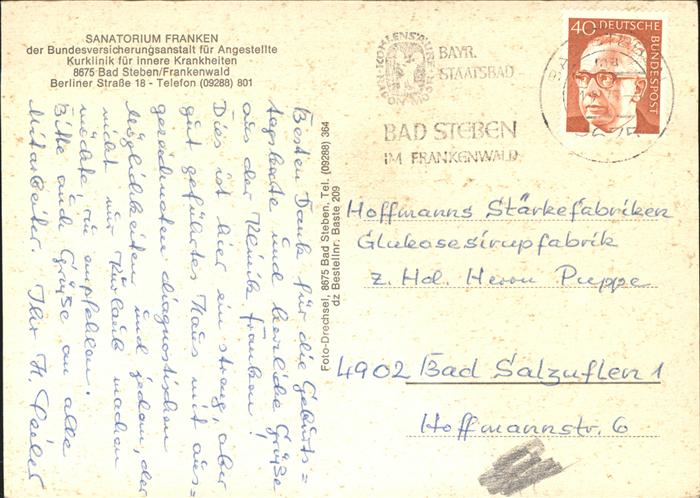 SANATORIUM FRANKEN
der Bundesversicherungsanstalt für Angestellte
Kurklinik für innere Krankheiten
8675 Bad Steben/Frankenwald
Berliner Straße 18 - Telefon (09288) 801
Besten Dank für die Geburts=
tagskarte und herzliche Grüße
aus der Klinik Franken!
Dies ist hier ein streng, aber
gut geführtes Haus mit aus=
gezeichneten diagnostischen
Möglichkeiten und jedem, der
nicht nur Kurlaub machen
möchte zu empfehlen.
Bitte auch Grüße an alle
Mitarbeiter. Ihr H.
Foto-Drechsel, 8675 Bad Steben, Tel. (09288) 364
dz Bestellnr. Baste 209
BAYR.
STAATSBAD
BAD STEBEN
IM FRANKENWALD
40 DEUTSCHE
BUNDESPOST
8675
Hoffmanns Stärkefabriken
Glukosesirupfabrik
z. Hd. Herrn Puppe
4902 Bad Salzuflen 1
Hoffmannstr. 6